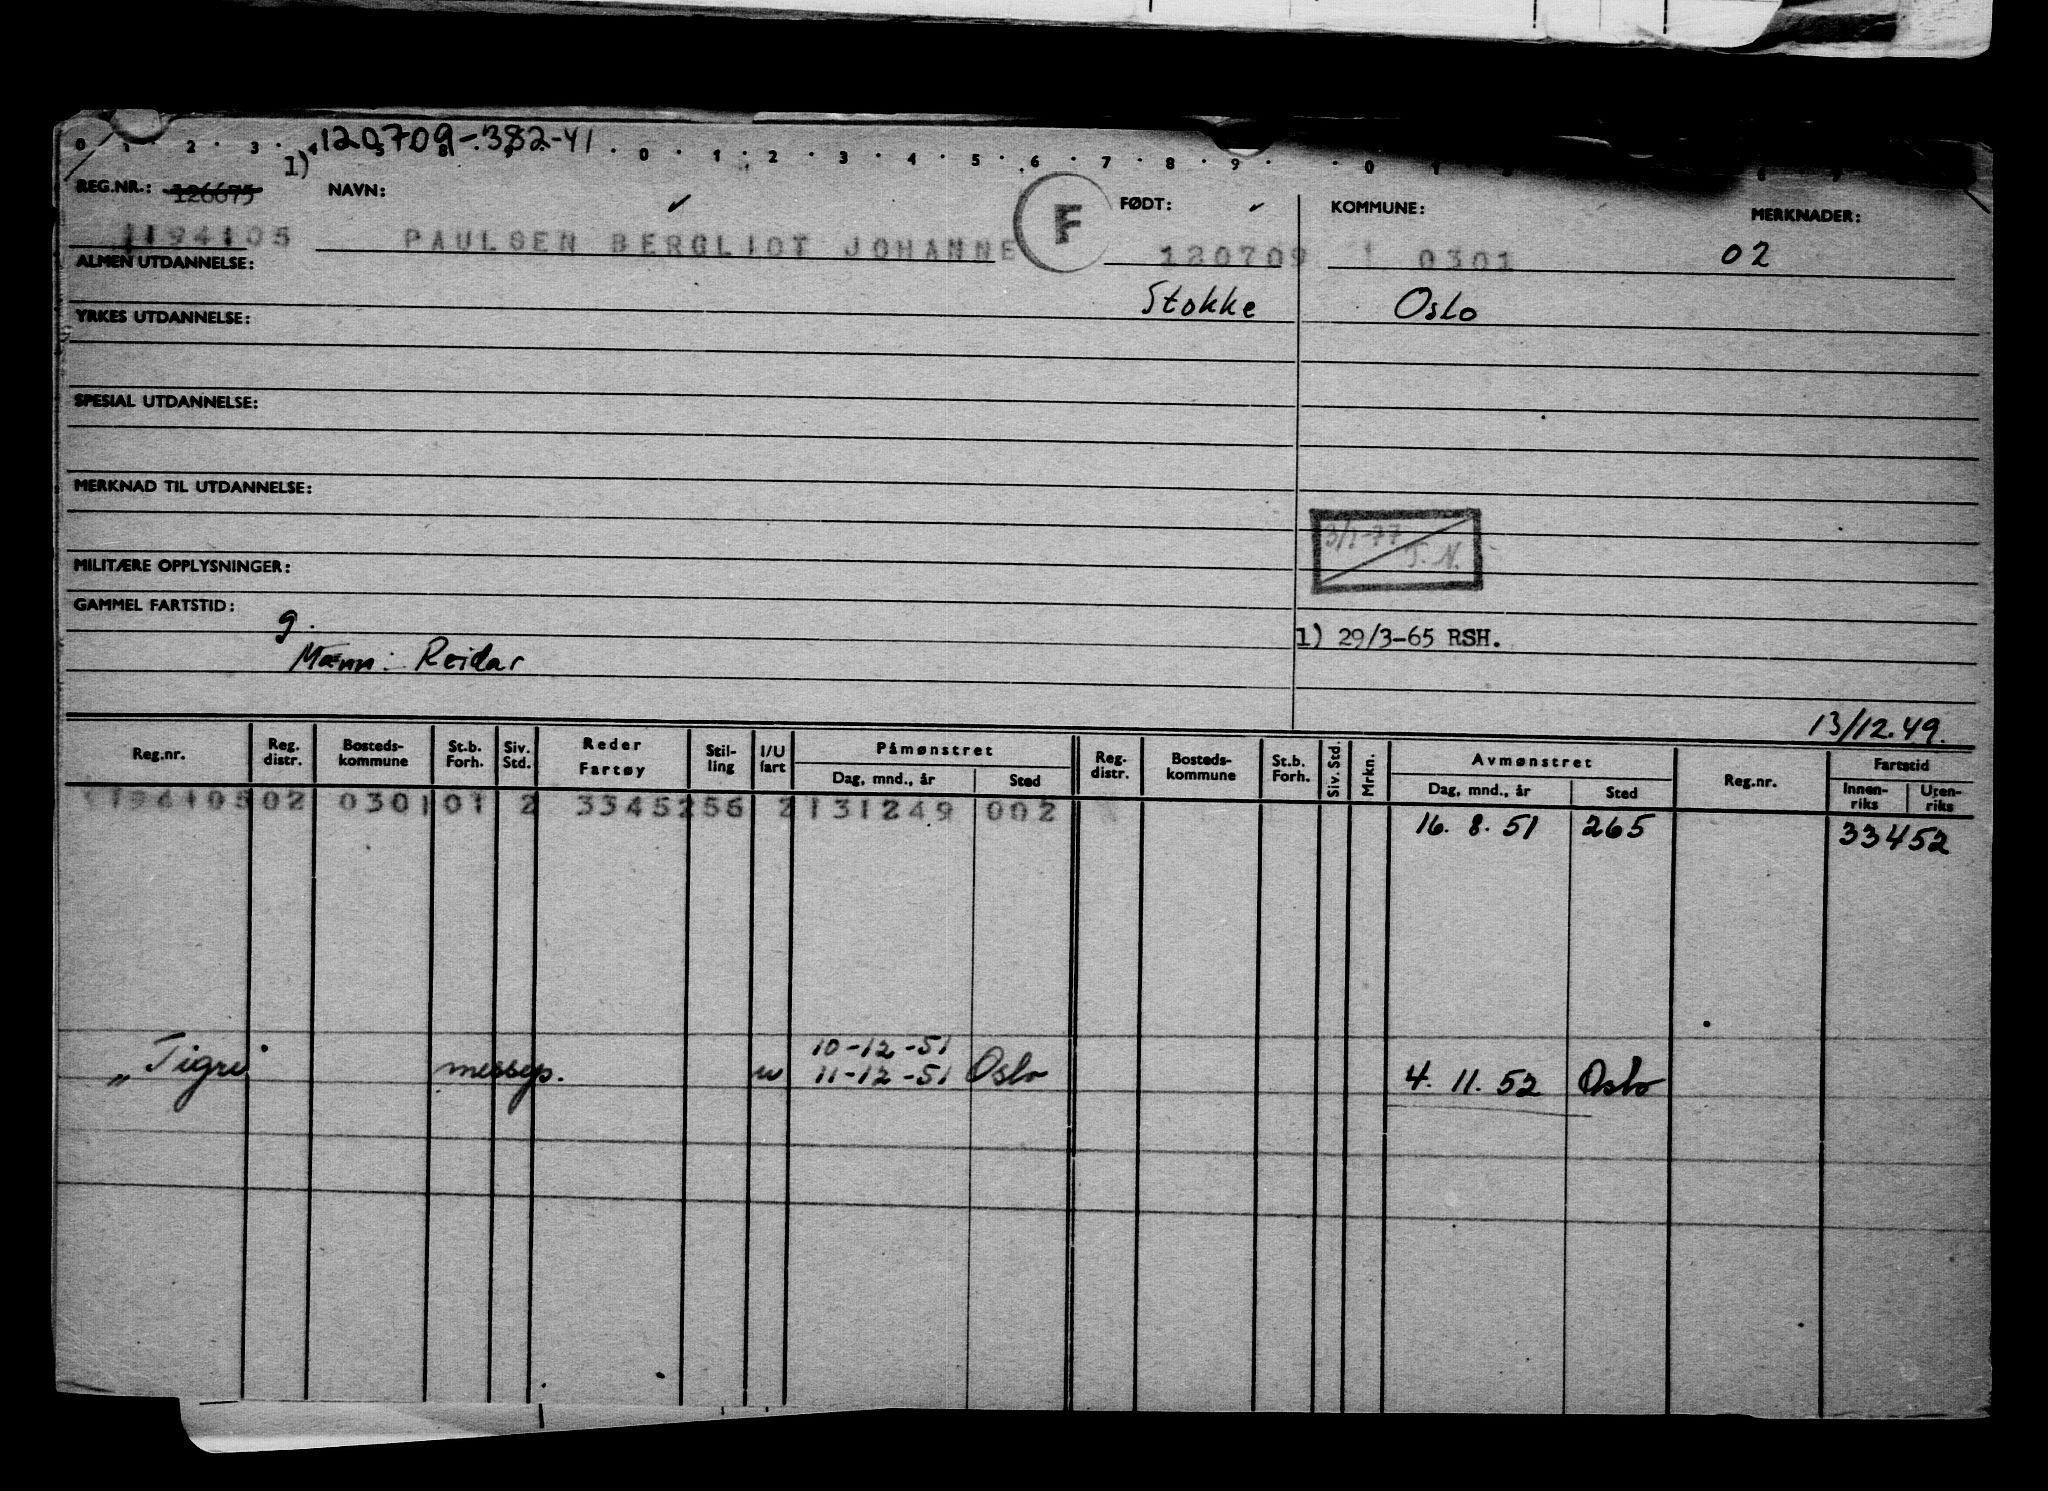 120709-382-41
0 1 2 3 0 1 2 3 4 5 6 7 8 9 0 1
1)
REG.NR.: 126675 NAVN: F FØDT: KOMMUNE: MERKNADER:
1194105 PAULSEN BERGLIOT JOHANNE 120709 0301 02
ALMEN UTDANNELSE: Stokke Oslo
YRKES UTDANNELSE:
SPESIAL UTDANNELSE:
MERKNAD TIL UTDANNELSE:
3/1-77
T.N.
MILITÆRE OPPLYSNINGER:
GAMMEL FARTSTID:
g.
1) 29/3-65 RSH.
Mann: Reidar
13/12.49.
Reg.nr. Reg. distr. Bosteds-kommune St.b. Forh. Siv. Std. Reder Fartøy Stil-ling I/U fart Påmønstret Dag, mnd., år Sted Reg. distr. Bosteds-kommune St.b. Forh. Siv. Std. Mrkn. Avmønstret Dag, mnd., år Sted Reg.nr. Fartstid Innen-riks Uten-riks
1194105 02 0301 01 2 3345256 2 131249 002
16. 8. 51 265 33452
10-12-51
"Tigre" messep. u 11-12-51 Oslo 4. 11. 52 Oslo